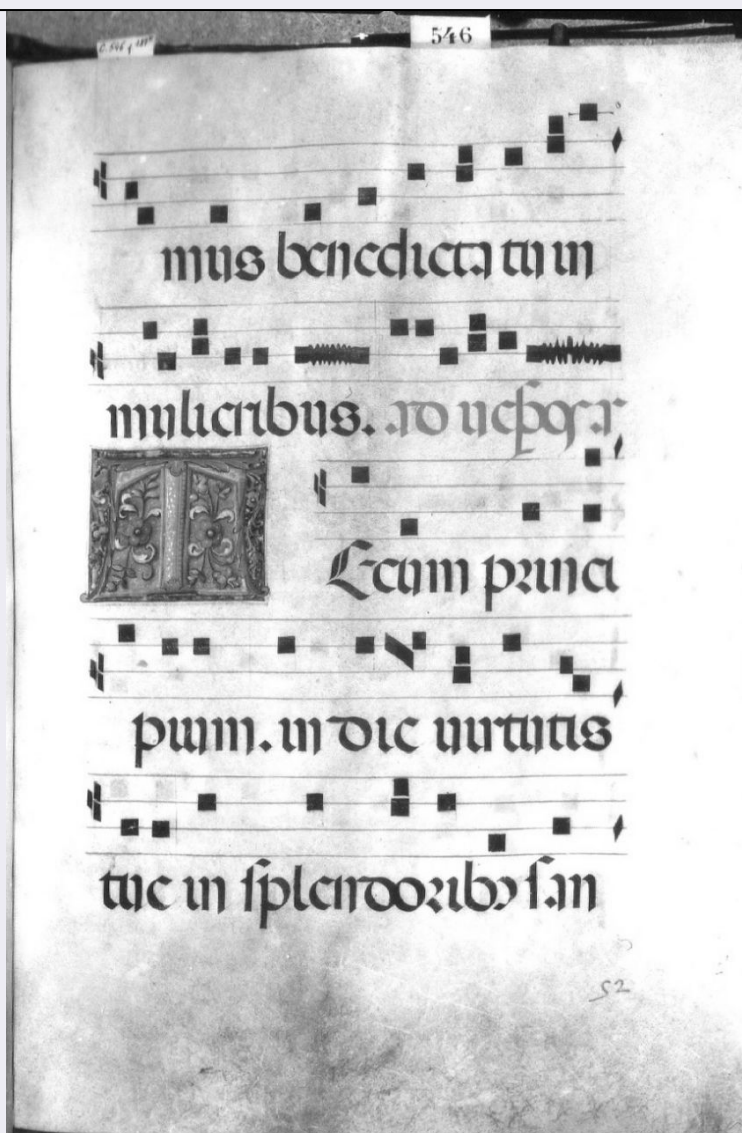 546
mus benedicta tu in
mulieribus. ad uesperas
T Ecum princi
pium. in die uirtutis
tue in splendoribus san
52